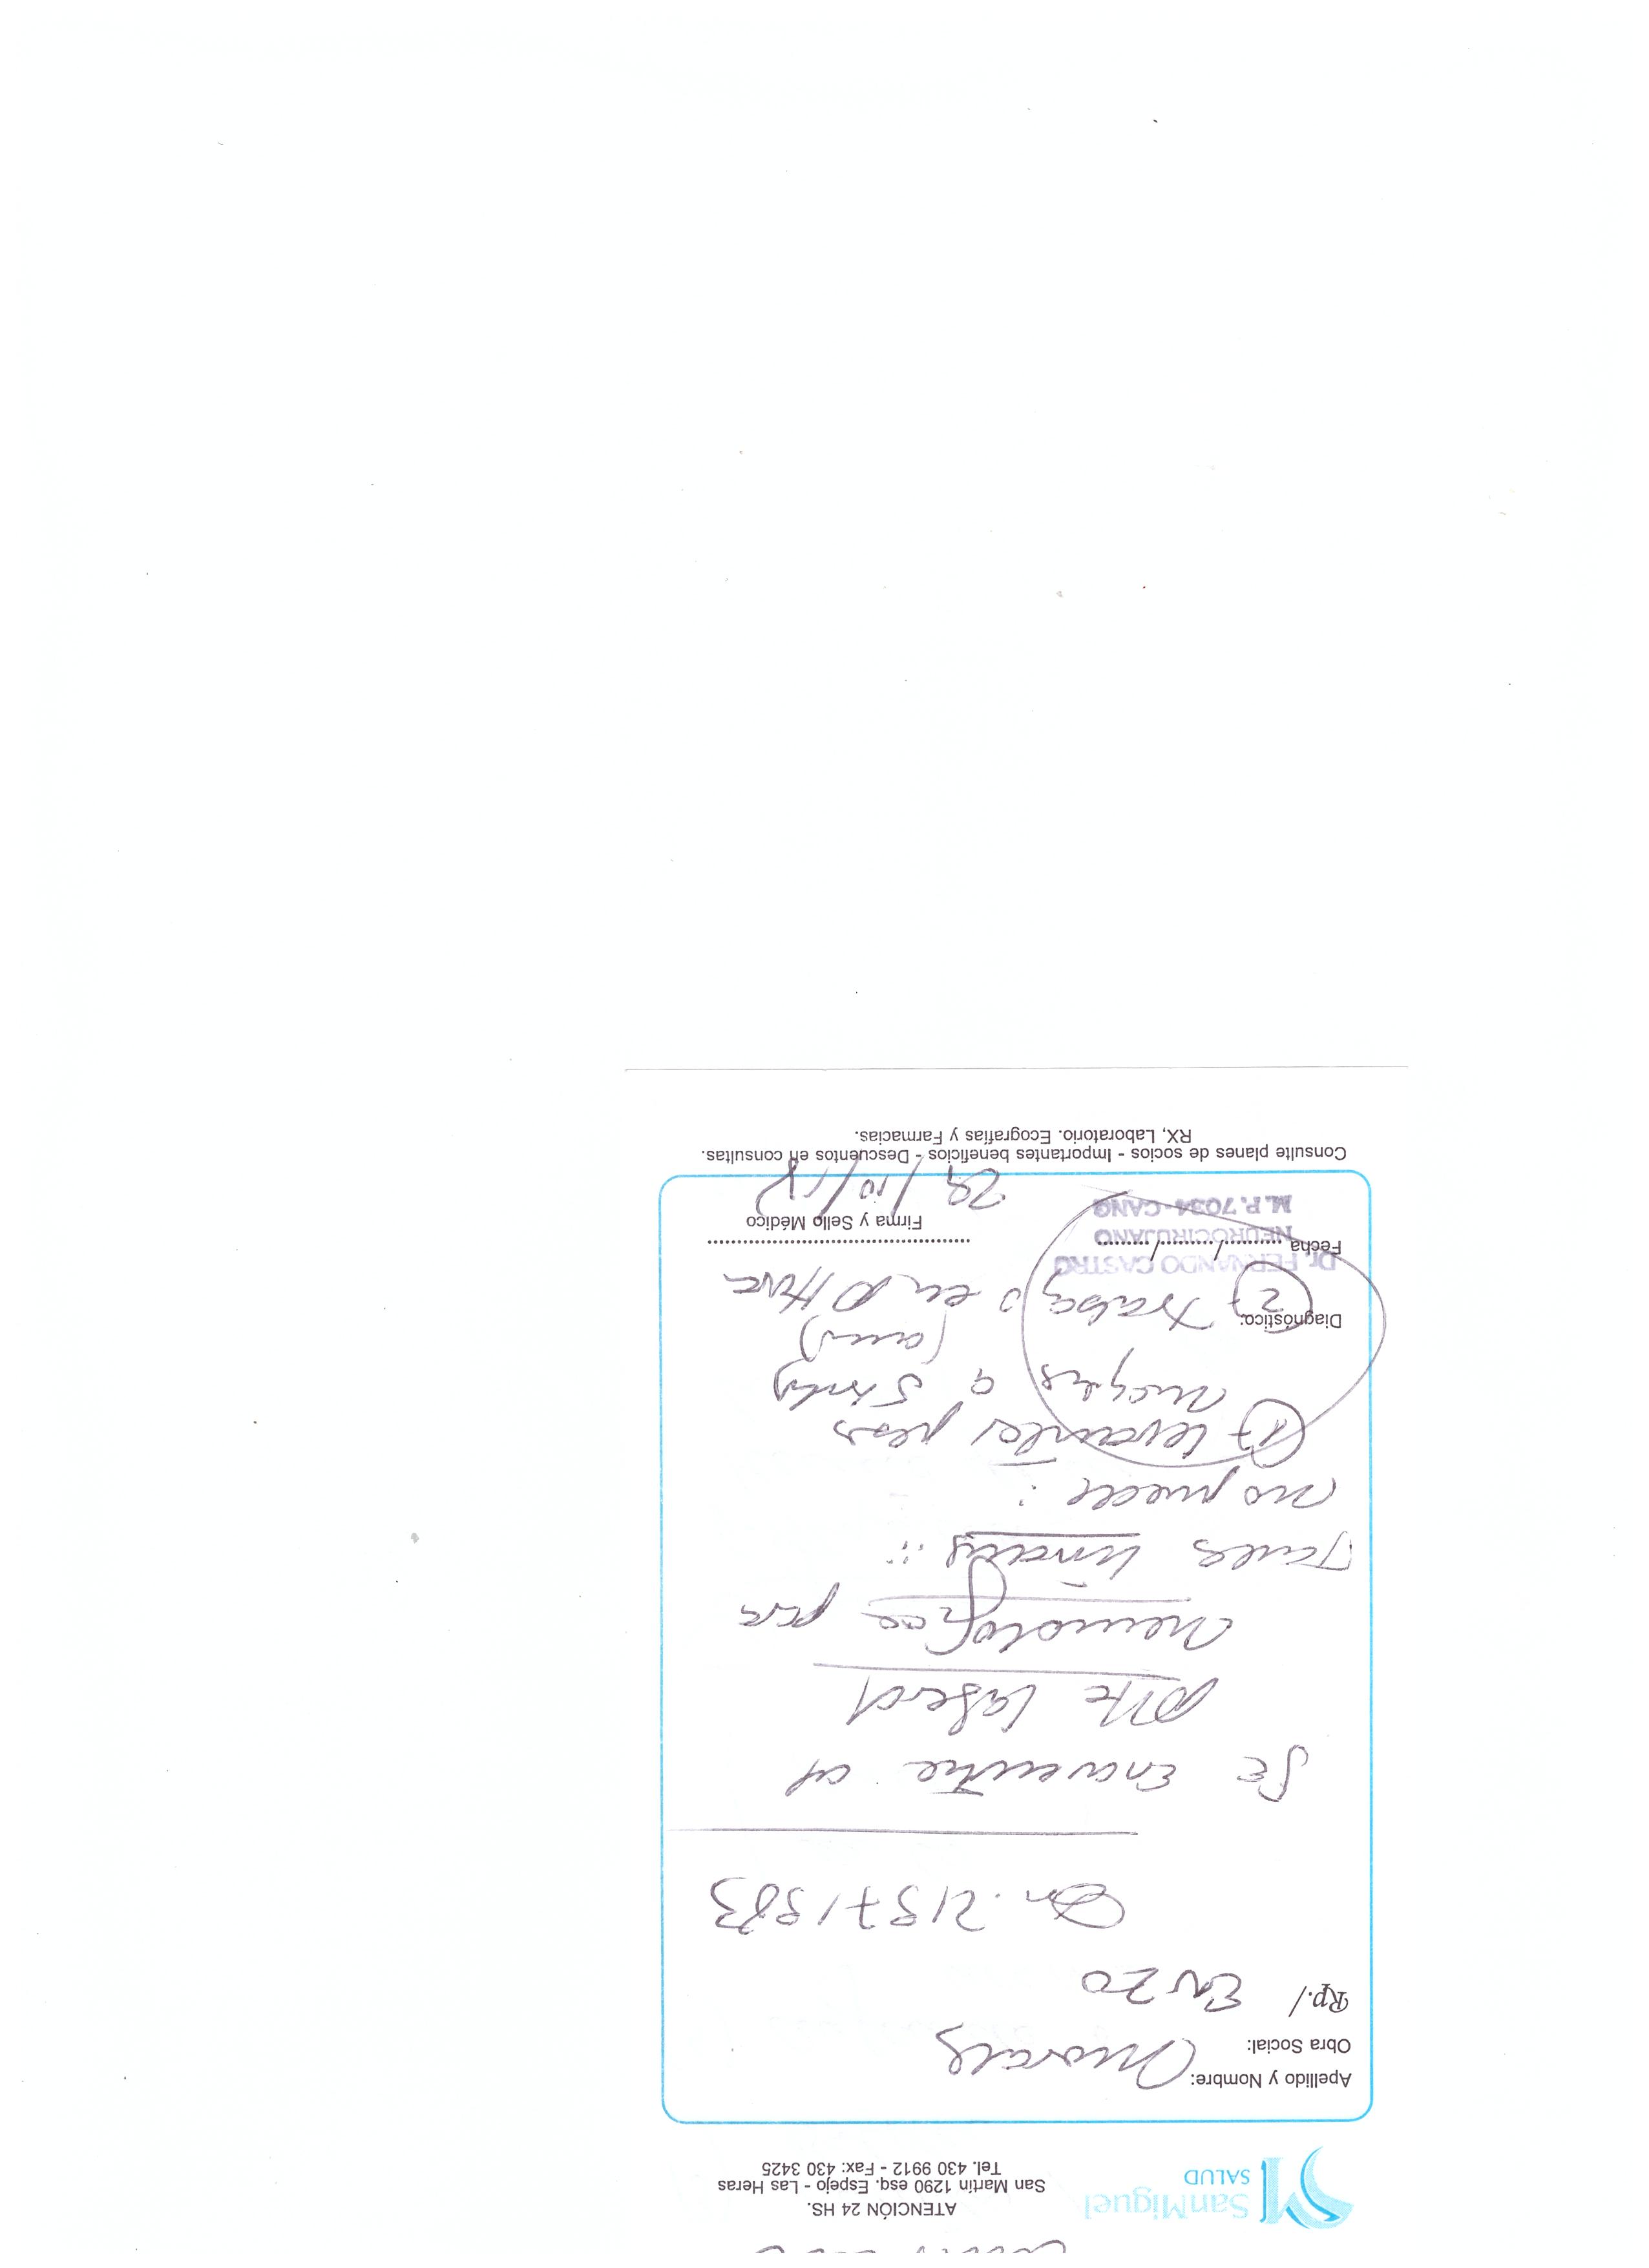 SanMiguel
SALUD
ATENCIÓN 24 HS.
San Martín 1290 esq. Espejo - Las Heras
Tel. 430 9912 - Fax: 430 3425
Apellido y Nombre: Morales
Obra Social:
Rp./ Enzo
21571583
Se encuentra
Alta laboral
neurológica para
Tareas livianas
no puede :
1) levantar pesos
mayores a 5
2) trabajo en Altura
Diagnóstico:
Dr. FERNANDO CASTRO
NEUROCIRUJANO
M.P. 7034 - CANO
Fecha ........../........../..........
Firma y Sello Médico
29/10/18
Consulte planes de socios - Importantes beneficios - Descuentos en consultas.
RX, Laboratorio. Ecografías y Farmacias.